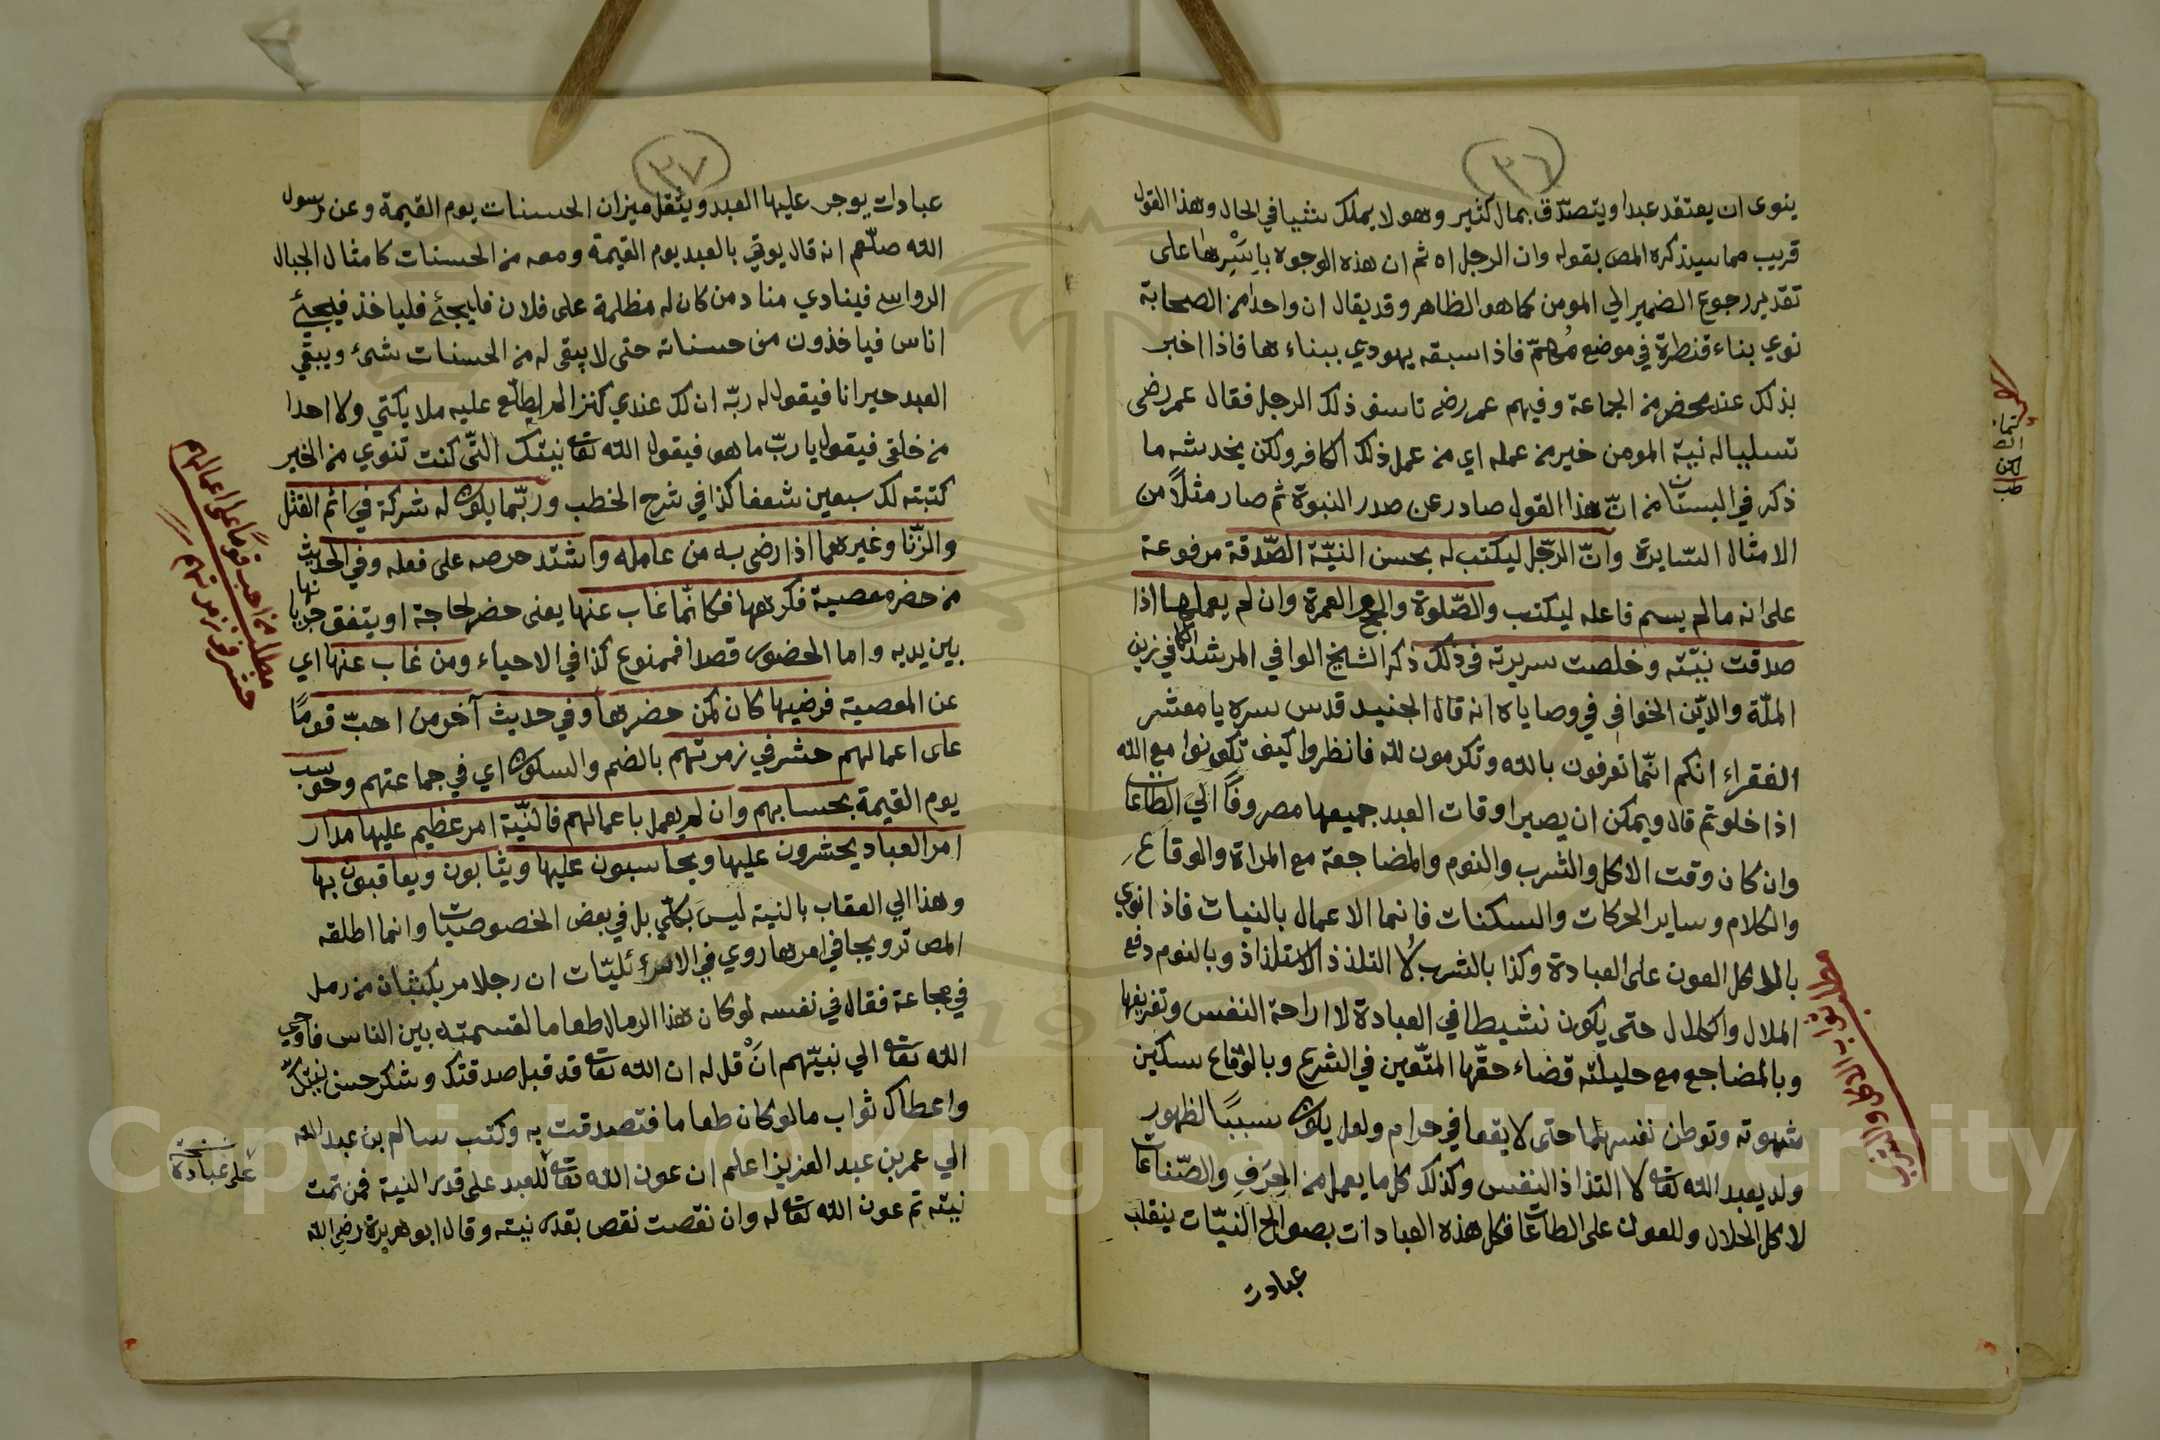 ٣٦
ينوى ان يعتقد عبدا ويتصدّق بمال كثير وهو لا يملك شيا في الحال وهذا القول
قريب مما سيذكره المص بقوله وان الرجل اه ثم ان هذه الوجوه باسرها على
تقدير رجوع الضمير الي المومن كما هو الظاهر وقد يقال ان واحدا من الصحابة
نوي بناء قنطرة في موضع مهمّ فاذا سبقه يهودي ببناءها فاذا اخبر
بذلك عند محضر من الجماعة وفيهم عمر رضه تاسف ذلك الرجل فقال عمر رضى
تسليا له نية المومن خير من عمله اي من عمل ذلك الكافر ولكن يخدشه ما
ذكر في البستان من انّ هذا القول صادر عن صدر النبوة ثم صار مثلاً من
الامثال السّايرة وانّ الرّجل ليكتب له بحسن النيّة الصّدقة مرفوعة
على انه مالم يسم فاعله ليكتب والصّلوة والحج والعمرة وان لم يعملها اذا
صدقت نيّته وخلصت سريرته في ذلك ذكر الشيخ الوافي المرشد الكافي زين
الملّة والدّين الخوافي في وصاياه انه قال الجنيد قدس سره يا معشر
الفقراء انكم انّما تعرفون بالله وتكرمون لله فانظروا كيف تكونوا مع الله
اذا خلوتم قال ويمكن ان يصير اوقات العبد جميعها مصروفاً الي الطاعات
وان كان وقت الاكل والشرب والنوم والمضاجعة مع المراة والوقاع
والكلام وساير الحركات والسكنات فانما الاعمال بالنيات فاذا نوي
بالاكل العون على العبادة وكذا بالشرب لا التلذذ الاستلذاذ وبالنوم دفع
الملال والكلال حتى يكون نشيطا في العبادة لا اراحة النفس وتفريغها
وبالمضاجع مع حليلته قضاء حقّها المتّعين في الشرع وبالوقاع سكين
شهوته وتوطن نفسهما حتى لا يقعا في حرام ولعل يكون سببًا لظهور
ولد يعبد الله تعا لا التذاذ النفس وكذلك كل ما يعمل من الحِرَفِ والصّناعات
لاكل الحلال وللعون على الطاعات فكل هذه العبادات بصوالح النيّات ينقلب
عبادت
مطلب ثواب الاكل والشرب
٣٧
عبادات يوجر عليها العبد ويثقل ميزان الحسنات يوم القيمة وعن رسول
الله صلّعم انه قال يوتي بالعبد يوم القيمة ومعه من الحسنات كامثال الجبال
الرواسي فينادي مناد من كان له مظلمة على فلان فليجئ فلياخذ فيجئ
اناس فياخذون من حسناته حتى لا يبقى له من الحسنات شئ ويبقي
العبد حيرانا فيقول له ربّه ان لك عندي كنزا لم يطلّع عليه ملايكتي ولا احدا
من خلقى فيقول يا ربّ ما هو فيقول الله تعا نيتك التّي كنت تنوي من الخير
كتبته لك سبعين ضعفا كذا في شرح الخطب وربّما يكون له شركة في اثم القتل
والزّنا وغيرهما اذا رضى به من عامله واشتد حرصه على فعله وفي الحديث
من حضر معصية فكرهها فكانّما غاب عنها يعنى حضر لحاجة او يتفق جريانها
بين يديه واما الحضور قصدا فممنوع كذا في الاحياء ومن غاب عنها اي
عن المعصية فرضيها كان كمن حضرها وفي حديث آخر من احبّ قومًا
على اعمالهم حشر في زمرتهم بالضم والسكون اي في جماعتهم وحوسب
يوم القيمة بحسابهم وان لم يعمل باعمالهم فالنيّة امر عظيم عليها مدار
امر العباد يحشرون عليها ويحاسبون عليها ويثابون ويعاقبون بها
وهذا الي العقاب بالنية ليسَ بكلّي بل في بعض الخصوصيات وانما اطلقه
المص ترويجا في امرها روي في الاسرائيليّات ان رجلا مر بكثبان من رمل
في مجاعة فقال في نفسه لو كان هذا الرمل طعاما لقسمته بين الناس فاوحي
الله تعا الي نبيّهم انْ قل له ان الله تعا قد قبل صدقتك وشكر حسن نيتك
واعطاك ثواب ما لو كان طعاما فتصدقت به وكتب سالم بن عبد الله
الي عمر بن عبد العزيز اعلم ان عون الله تعا للعبد على قدر النية فمن تمت
نيته تم عون الله تعا له وان نقصت نقص بقدر نيته وقال ابو هريرة رضى الله
مطلب من احب قوما على اعمالهم
حشر في زمرتهم
نسخة
على عباده